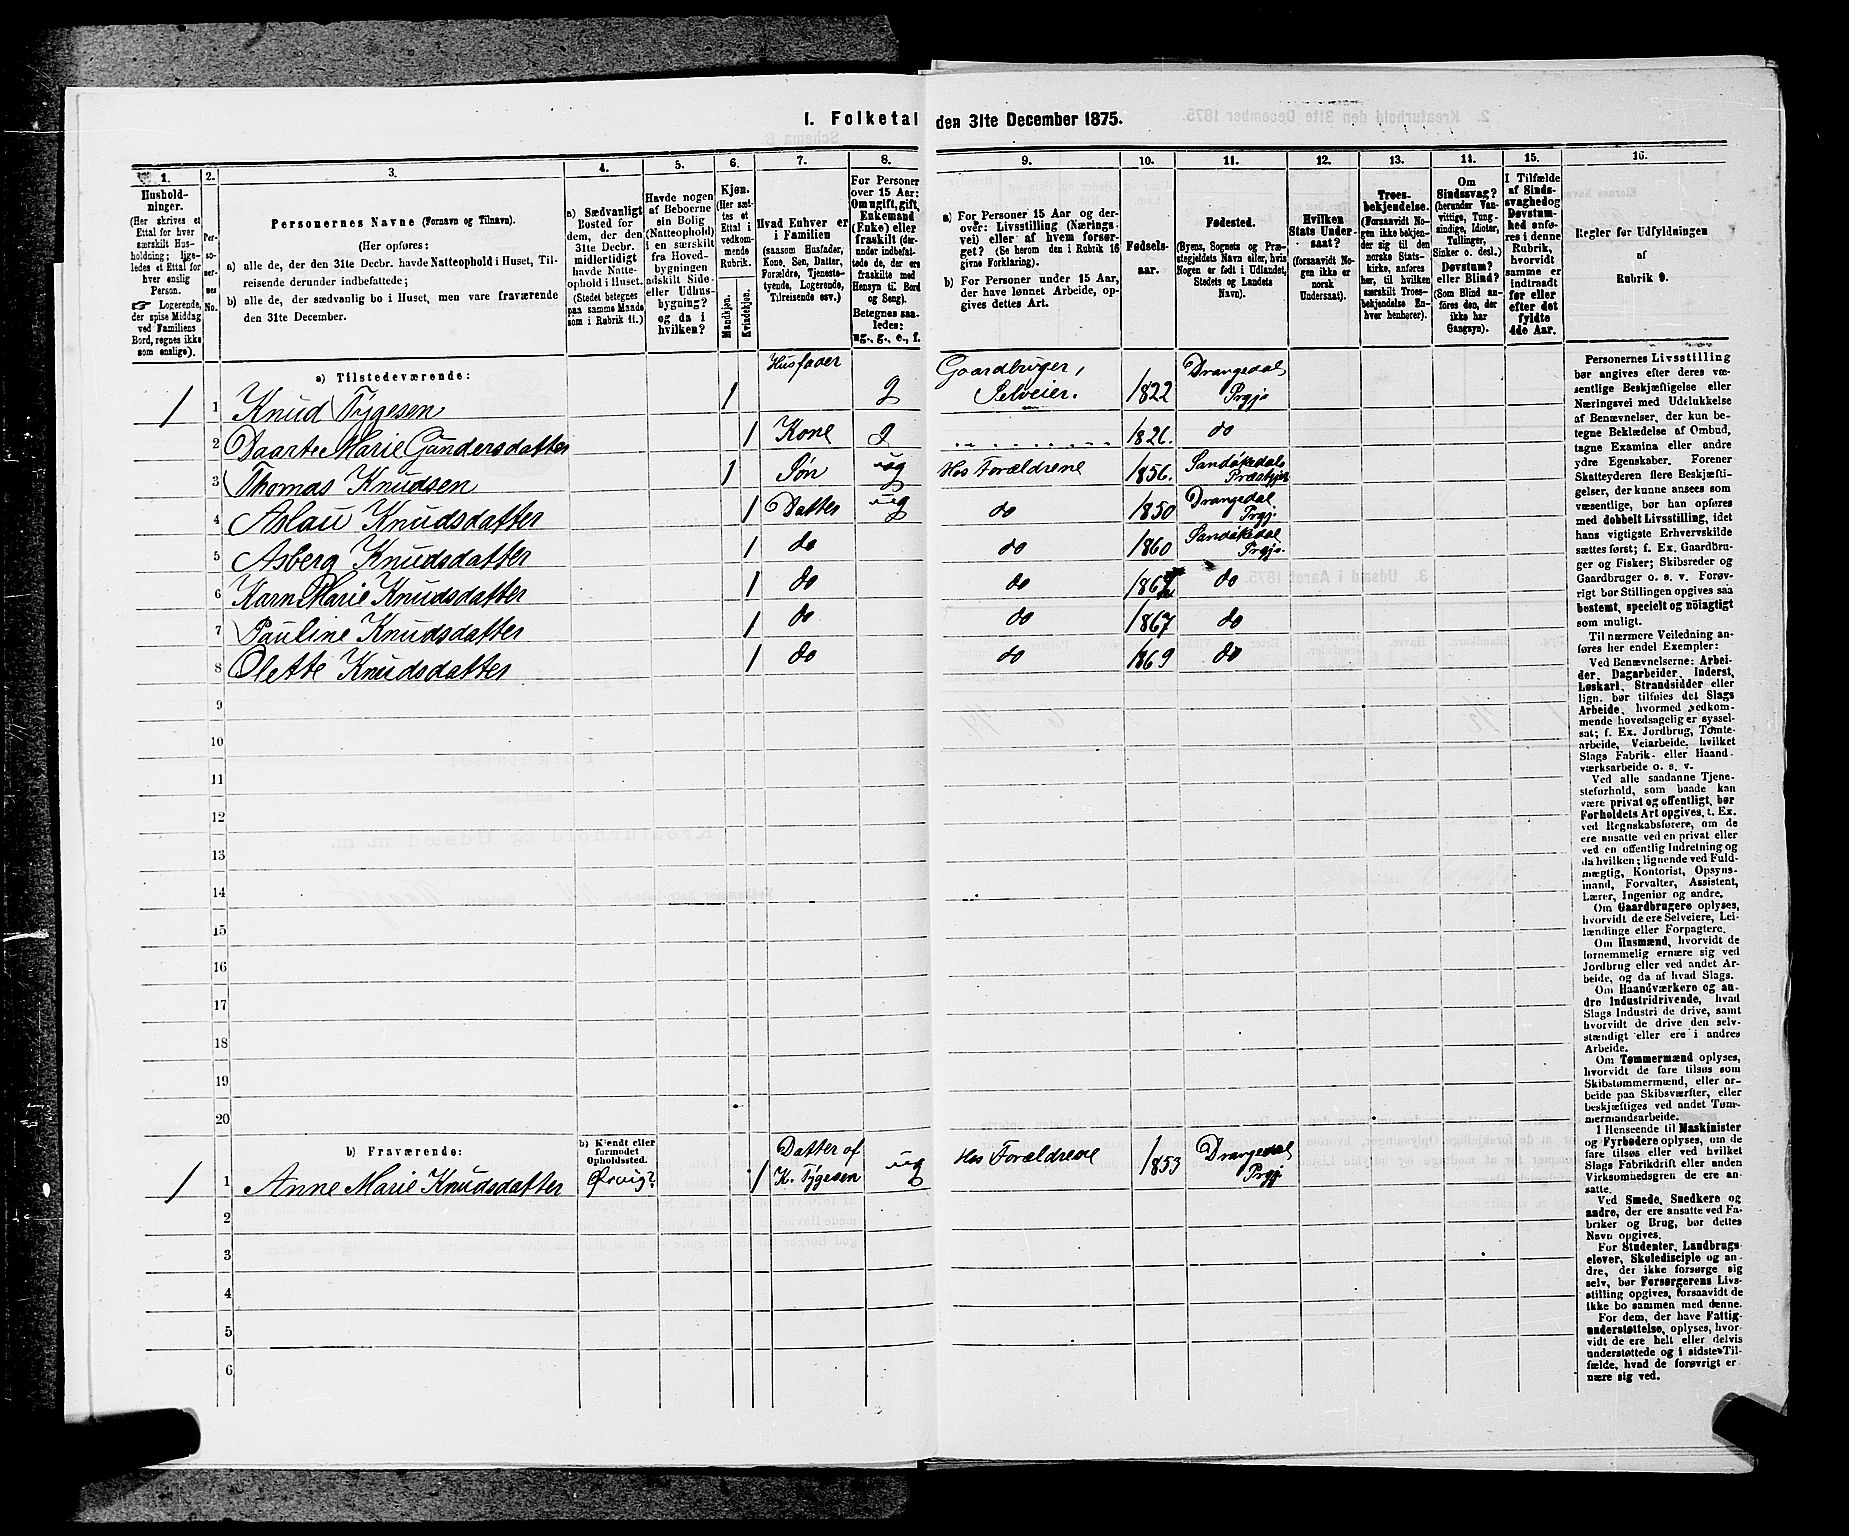 I. Folketal den 31te December 1875.
1. 2. 3. 4. 5. 6. 7. 8. 9. 10. 11. 12. 13. 14. 15. 16.
Hushold-
ninger.
(Her skrives et
Ettal for hver
særskilt Hus-
holdning; lige-
ledes et Ettal for
hver enslig
Person.
☞ Logerende,
der spise Middag
ved Familiens
Bord, regnes ikke
som enslige).
Per-
so-
ner-
nes
No.
Personernes Navne (Fornavn og Tilnavn).
(Her opføres:
a) alle de, der den 31te Decbr. havde Natteophold i Huset, Til-
reisende derunder indbefattede;
b) alle de, der sædvanlig bo i Huset, men vare fraværende
den 31te December.
a) Sædvanligt
Bosted for
dem, der den
31te Decbr.
midlertidigt
havde Natte-
ophold i Huset.
(Stedet betegnes
paa samme Maade
som i Rubrik 11.)
Havde nogen
af Beboerne
sin Bolig
(Natteophold)
i en særskilt
fra Hoved-
bygningen
adskilt Side-
eller Udhus-
bygning?
og da i
hvilken?
Kjøn.
(Her sæt-
tes et
Ettal i
vedkom-
mende
Rubrik.
Mandkjøn.
Kvindekjøn.
Hvad Enhver er
i Familien
(saasom Husfader,
Kone, Søn, Datter,
Forældre, Tjeneste-
tyende, Logerende,
Tilreisende osv.)
For Personer
over 15 Aar:
Om ugift, gift,
Enkemand
(Enke) eller
fraskilt (der-
under indbefat-
tede de, der ere
fraskilte med
Hensyn til Bord
og Seng).
Betegnes saa-
ledes:
ug., g., e., f.
a) For Personer 15 Aar og der-
over: Livsstilling (Nærings-
vei) eller af hvem forsør-
get? (Se herom den i Rubrik 16
givne Forklaring).
b) For Personer under 15 Aar,
der have lønnet Arbeide, op-
gives dettes Art.
Fødsels-
aar.
Fødested.
(Byens, Sognets og Præ-
stegjeldets Navn eller, hvis
Nogen er født i Udlandet,
Stedets og Landets
Navn).
Hvilken
Stats Under-
saat?
(forsaavidt No-
gen ikke er
norsk
Undersaat).
Troes-
bekjendelse.
(Forsaavidt No-
gen ikke bekjen-
der sig til den
norske Stats-
kirke, anføres
her, til hvilken
særskilt Troes-
bekjendelse En-
hver henhører).
Om
Sindssvag?
(herunder Van-
vittige, Tung-
sindige, Idioter,
Tullinger,
Sinker o. desl.)
Døvstum?
eller Blind?
(Som Blind an-
føres den, der
ikke har
Gangsyn).
I Tilfælde
af Sinds-
svaghed og
Døvstum-
hed anfø-
res i denne
Rubrik,
hvorvidt
samme er
indtraadt
før eller
efter det
fyldte
4de Aar.
Regler for Udfyldningen
af
Rubrik 9.
a) Tilstedeværende:
1 1 Knud Tygesen 1 Husfader g Gaardbruger, Selveier. 1822 Drangedal Prgj.
2 Daarte Marie Gundersdatter 1 Kone g 1826. do
3 Thomas Knudsen 1 Søn ug Hos Forældrene 1856. Sandøkedal Præstgjeld
4 Aslau Knudsdatter 1 Datter ug do 1850 Drangedal Prgj.
5 Asberg Knudsdatter 1 do do 1860 Sandøkedal Prgj.
6 Karn Marie Knudsdatter 1 do do do
7 Pauline Knudsdatter 1 do do 1867 do
8 Olette Knudsdatter 1 do do 1869 do
9
10
11
12
13
14
15
16
17
18
19
20
b) Fraværende:
b) Kjendt eller
formodet
Opholdssted.
1 1 Anne Marie Knudsdatter Ørvig? 1 Datter af K. Tygesen ug Hos Forældrene 1853 Drangedal Prgj.
2
3
4
4
5
6
Personernes Livsstilling
bør angives efter deres væ-
sentlige Beskjæftigelse eller
Næringsvei med Udelukkelse
af Benævnelser, der kun be-
tegne Beklædelse af Ombud,
tagne Examina eller andre
ydre Egenskaber. Forener
Skatteyderen flere Beskjæfti-
gelser, der kunne ansees som
væsentlige, bør han opføres
med dobbelt Livsstilling, idet
hans vigtigste Erhvervskilde
sættes først; f. Ex. Gaardbru-
ger og Fisker; Skibsreder og
Gaardbruger o. s. v. Forøv-
rigt bør Stillingen opgives saa
bestemt, specielt og nöiagtigt
som muligt.
Til nærmere Veiledning an-
føres her endel Exempler:
Ved Benævnelserne: Arbei-
der, Dagarbeider, Inderst,
Løskarl, Strandsidder eller
lign. bør tilføies det Slags
Arbeide, hvormed vedkom-
mende hovedsagelig er syssel-
sat; f. Ex. Jordbrug, Tomte-
arbeide, Veiarbeide, hvilket
Slags Fabrik- eller Haand-
værksarbeide o. s. v.
Ved alle saadanne Tjene-
steforhold, som baade kan
være privat og offentligt, bør
Forholdets Art opgives, t. Ex.
ved Regnskabsførere, om de
ere ansatte ved en privat eller
ved en offentlig Indretning og
da hvilken; lignende ved Fuld-
mægtig, Kontorist, Opsyns-
mand, Forvalter, Assistent,
Lærer, Ingeniør og andre.
Om Gaardbrugere oplyses,
hvorvidt de ere Selveiere, Lei-
lændinge eller Forpagtere.
Om Husmænd, hvorvidt de
fornemmelig ernære sig ved
Jordbrug eller ved andet Ar-
beide, og da af hvad Slags.
Om Haandværkere og an-
dre Industridrivende, hvad
Slags Industri de drive, samt
hvorvidt de drive den selv-
stændigt eller ere i andres
Arbeide.
Om Tømmermænd oplyses,
hvorvidt de fare tilsøs som
Skibstømmermænd, eller ar-
beide paa Skibsværfter, eller
beskjæftiges ved andet Tøm-
mermandsarbeide.
I Henseende til Maskinister
og Fyrbødere oplyses, om de
fare tilsøs eller ved hvilket
Slags Fabrikdrift eller anden
Virksomhedsgren de ere an-
satte.
Ved Smede, Snedkere og
andre, der ere ansatte ved Fa-
briker og Brug, bør dettes
Navn opgives.
For Studenter, Landbrugs-
elever, Skoledisciple og an-
dre, der ikke forsørge sig
selv, bør Forsørgerens Livs-
stilling opgives, forsaavidt de
ikke bo sammen med denne.
For dem, der have Fattig-
understøttelse, oplyses, hvor-
vidt de ere helt eller delvis
understøttede og i sidste Til-
fælde, hvad de forøvrigt er-
nære sig ved.